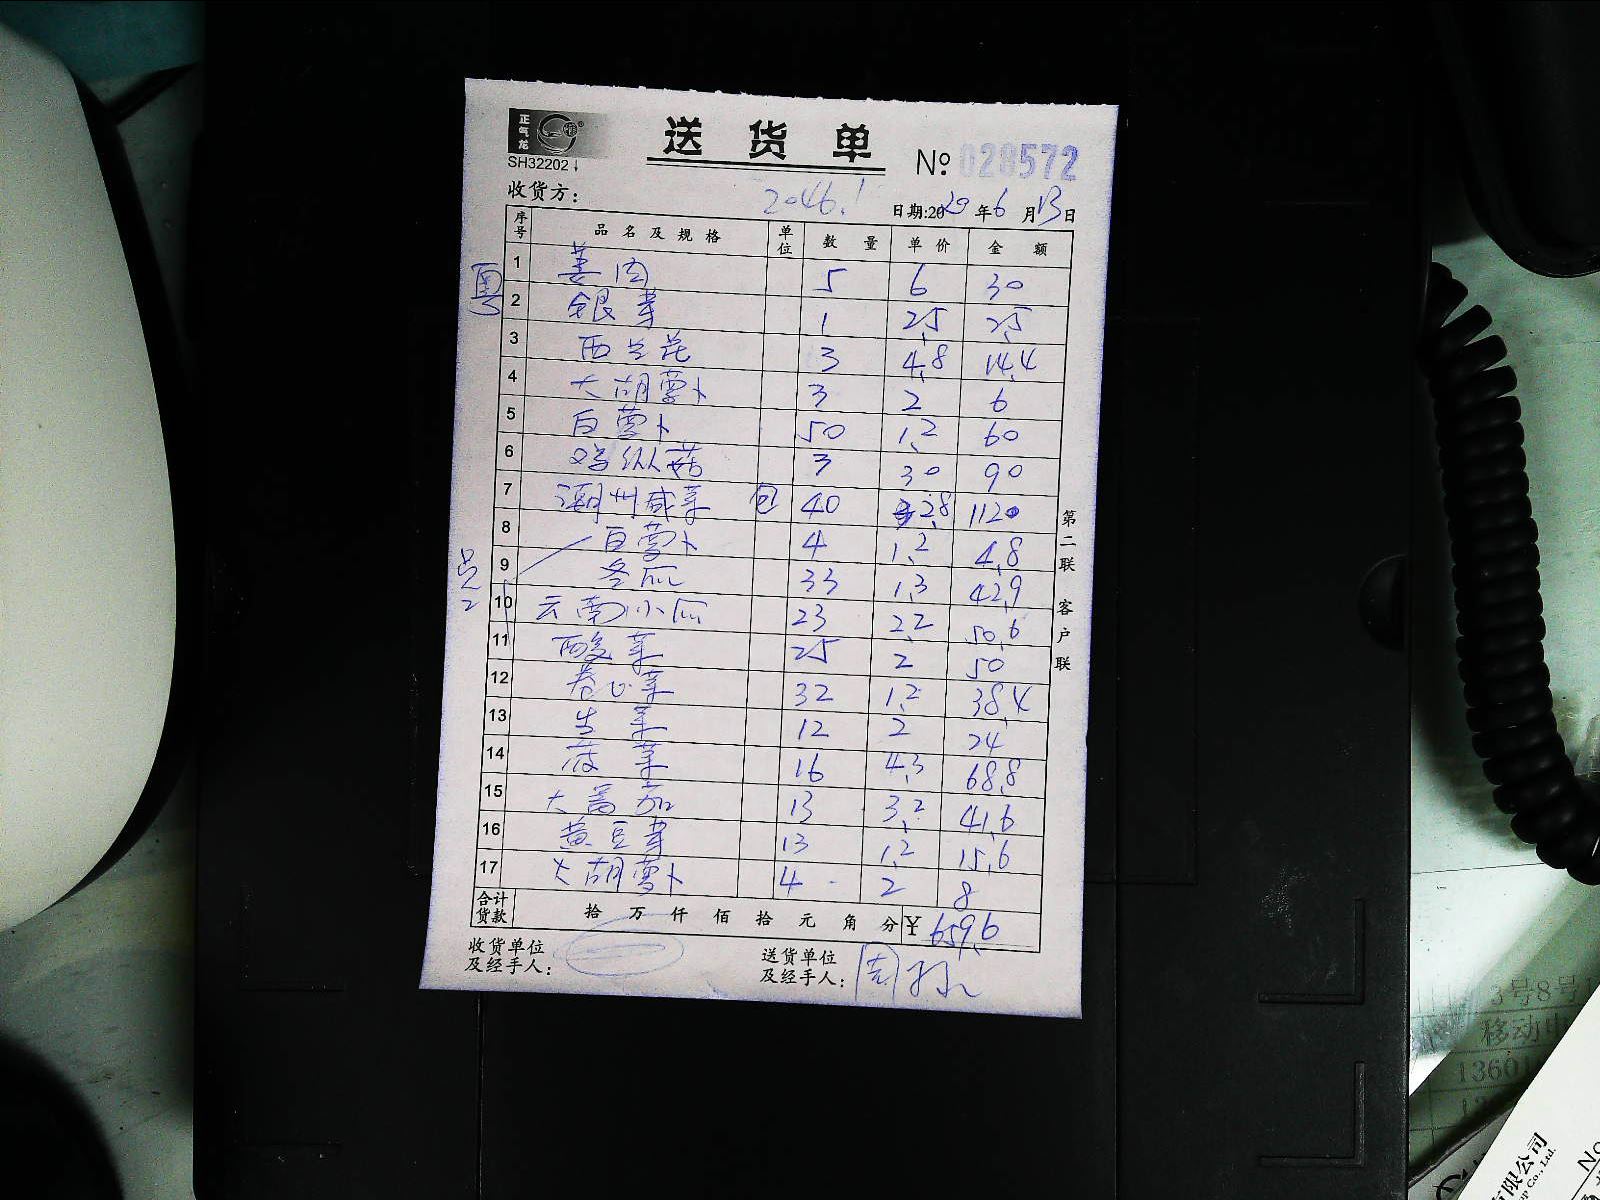 正气龙
SH32202
送货单
No: 028572
收货方:
2046.1
日期:2020年6月13日
序号 品名及规格 单位 数量 单价 金额
粤
1 姜肉 5 6 30
2 银芽 1 2.5 2.5
3 西兰花 3 4.8 14.4
4 大胡萝卜 3 2 6
5 白萝卜 50 1.2 60
6 鸡纵菇 3 30 90
7 潮州咸菜 包 40 2.8 112
8 白萝卜 4 1.2 4.8
9 冬瓜 33 1.3 42.9
10 云南小瓜 23 2.2 50.6
11 酸菜 25 2 50
12 卷心菜 32 1.2 38.4
13 生菜 12 2 24
14 菠菜 16 4.3 68.8
15 大番茄 13 3.2 41.6
16 黄豆芽 13 1.2 15.6
17 大胡萝卜 4 2 8
合计货款 拾 万 仟 佰 拾 元 角 分 ¥ 659.6
收货单位及经手人:
送货单位及经手人:
第二联 客户联
3号8号
移动电
1360
有限公司
Co., Ltd.
No